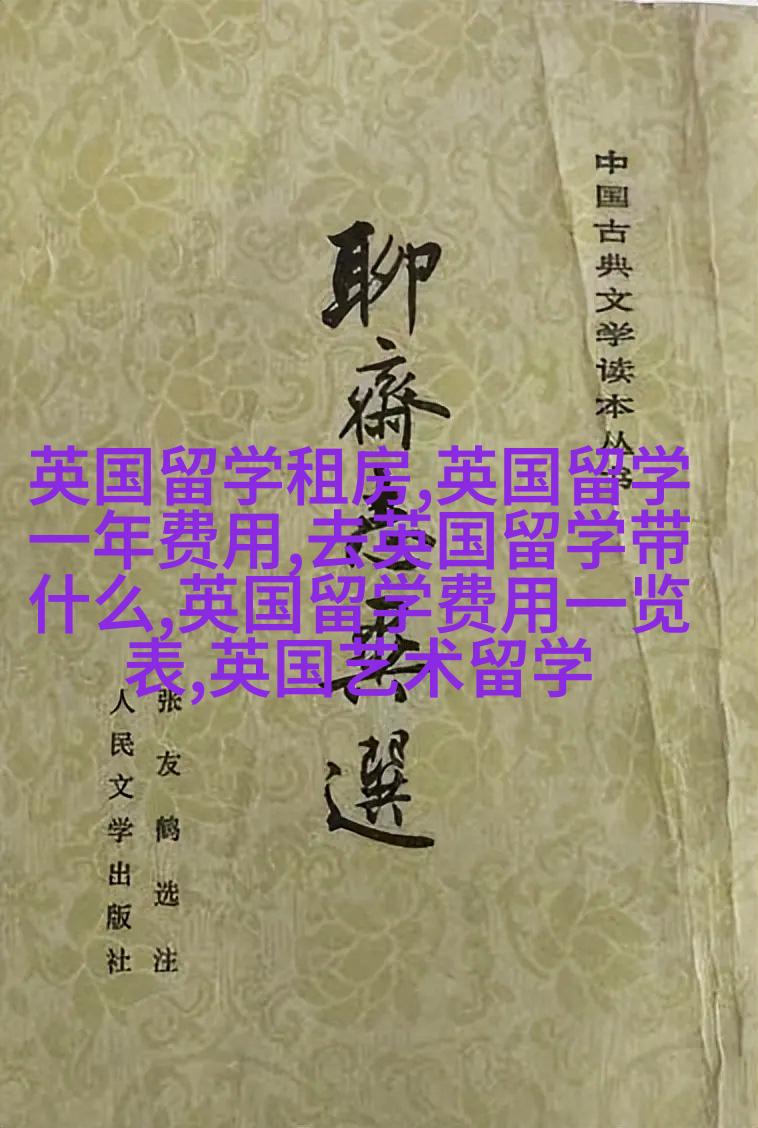 中国古典文学读本丛书
聊齋志異選
张友鹤选注
人民文学出版社
英国留学租房,英国留学
一年费用,去英国留学带
什么,英国留学费用一览
表,英国艺术留学